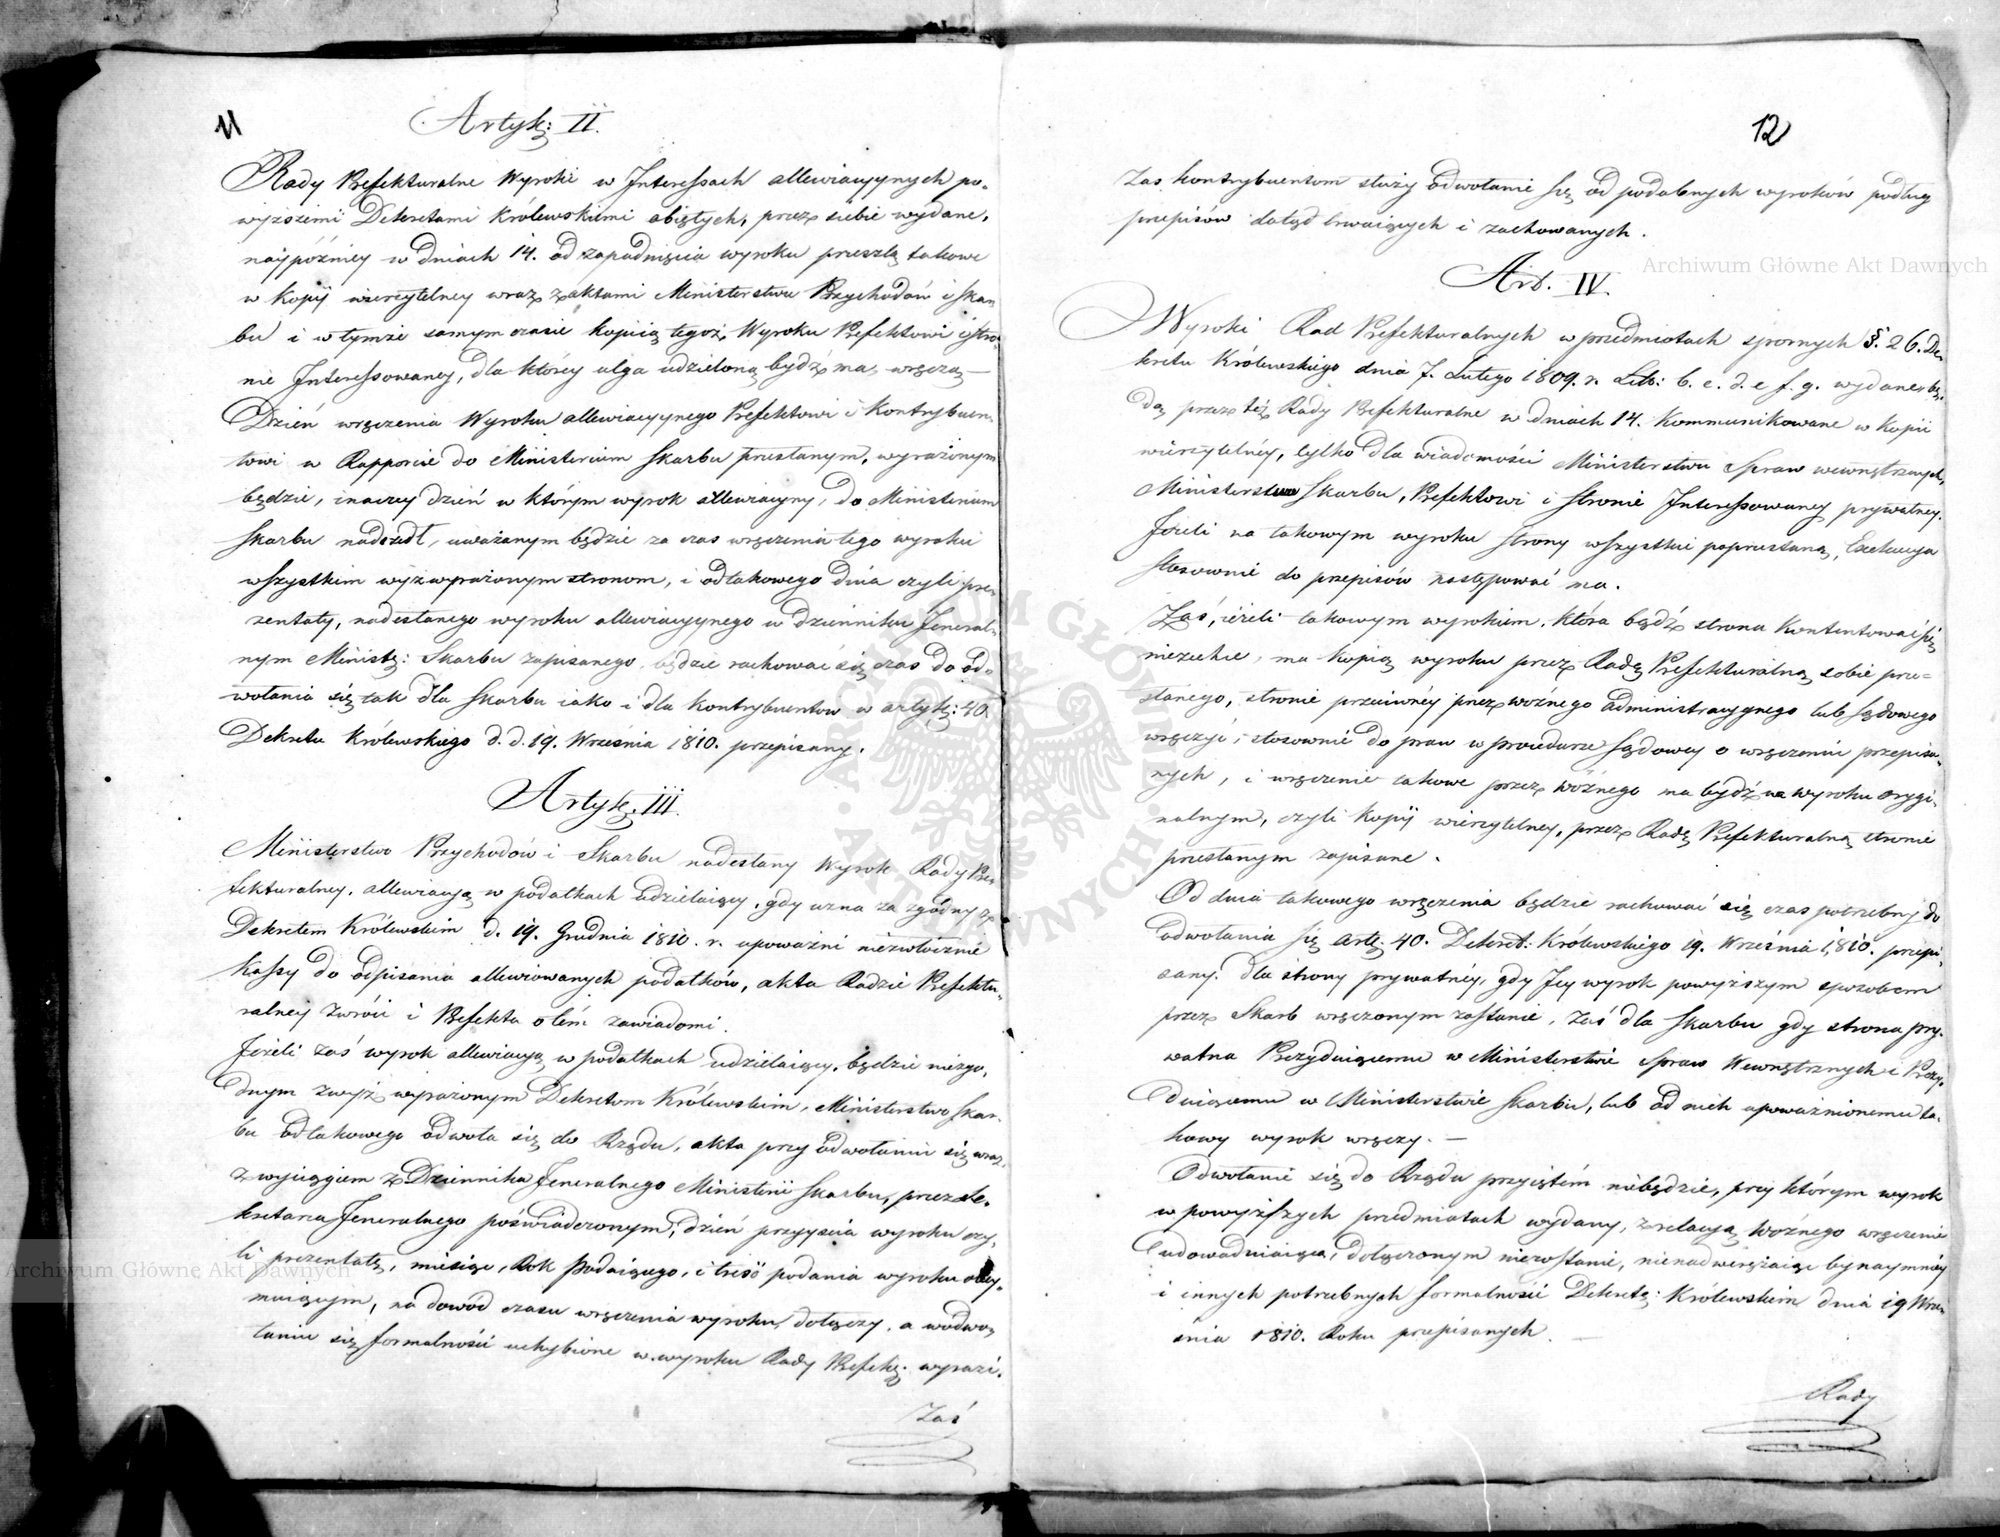 11
Artykę: II.
Rady Prefekturalne Wyroki w Interessach allewiacyynych po-
wyższemi Dekretami Królewskiemi obiętych, przez siebie wydane,
naypóźniey w dniach 14. od zapadnięcia wyroku przeszlą takowe
w Kopij wierzytelney wraz z aktami Ministerstwu Przychodów i Skar-
bu i w tymże samym czasie kopią tegoż Wyroku Prefektowi i stro-
nie Interessowaney, dla którey ulga udzieloną bydź ma, wręczą —
Dzień wręczenia Wyroku allewiacyynego Prefektowi i Kontrybuen-
towi w Rapporcie do Ministerium Skarbu przesłanym, wyrażonym
będzie, inaczey dzień w którym wyrok allewiacyny, do Ministerium
Skarbu nadszedł, uważanym będzie za czas wręczenia tego wyroku
wszystkim wyż wyrażonym stronom, i od takowego dnia czyli pre-
zentaty, nadesłanego wyroku allewiacyynego w dzienniku Jeneral-
nym Ministę: Skarbu zapisanego będzie rachować się czas do od-
wołania się tak dla Skarbu iako i dla kontrybuentow w artykę: 40.
Dekretu Królewskiego d. d. 19. Września 1810. przepisany.
Artykę. III.
Ministerstwo Przychodów i Skarbu nadesłany Wyrok Rady Pre-
fekturalney, allewiacyą w podatkach udzielaiący, gdy uzna za zgodny z
Dekretem Królewskim d. 19. Grudnia 1810. r. upoważni niezwłocznie
Kassy do odpisania allewiowanych podatków, akta Radzie Prefektu-
ralney zwróci i Prefekta o tém zawiadomi.
Jeżeli zaś wyrok allewiacyą w podatkach udzielaiący, będzie niezgo-
dnym zwyż wyrażonym Dekretom Królewskim, Ministerstwo Skar-
bu od takowego odwoła się do Rządu, akta przy odwołaniu się wraz
z wyciągiem z Dziennika Jeneralnego Ministerii Skarbu, przez Se-
kretarza Jeneralnego poświadczonym, dzień przyyścia wyroku czy-
li prezentatę, miesiąc, Rok Podaiącego, i treść podania wyroku obey-
muiącym, na dowód czasu wręczenia wyroku dołączy, a w odwo-
łaniu się formalności uchybione w wyroku Rady Prefekę. wyrazi.
Zaś
12
Zaś kontrybuentom służy odwołanie się od podobnych wyroków podług
przepisów dotąd trwaiących i zachowanych.
Art. IV.
Wyroki Rad Prefekturalnych w przedmiotach spornych §. 26. De-
kretu Królewskiego dnia 7. Lutego 1809. r. Lit: b. c. d. e f. g. wydane, bę-
dą przez też Rady Prefekturalne w dniach 14. kommunikowane w kopii
wierzytelnéy, tylko dla wiadomości Ministerstwu Spraw wewnętrznych,
Ministerstwu Skarbu, Prefektowi i Stronie Interessowaney prywatney.
Jeżeli na takowym wyroku strony wszystkie poprzestaną, Exekucya
stosownie do przepisów następować ma.
Zaś, ieżeli takowym wyrokiem, która bądź strona kontentować się
niezechce, ma kopią wyroku przez Radę Prefekturalną sobie prze-
słanego, stronie przeciwnéy przez woźnego administracyynego lub sądowego
wręczyć, stosownie do praw w procedurze sądowey o wręczeniu przepisa-
nych, i wręczenie takowe przez woźnego ma bydź na wyroku orygi-
nalnym, czyli kopij wierzytelney, przez Radę Prefekturalną stronie
przesłanym zapisane.
Od dnia takowego wręczenia będzie rachować się czas potrzebny do
odwołania się artę. 40. Dekret: Królewskiego 19. Września 1810. przepi-
sany. dla strony prywatnéy, gdy Jey wyrok powyższym sposobem
przez Skarb wręczonym zostanie, zaś dla Skarbu gdy strona pry-
watna Prezyduiącemu w Ministerstwie Spraw Wewnętrznych i Prezy-
duiącemu w Ministerstwie Skarbu, lub od nich upoważnionemu ta-
kowy wyrok wręczy. —
Odwołanie się do Rządu przyiętém niebędzie, przy którym wyrok
w powyższych przedmiotach wydany, z relacyą woźnego wręczenie
udowadniaiącą, dołączonym niezostanie, nienadwerężaiąc bynaymniéy
i innych potrzebnych formalności Dekretę: Królewskim dnia 19 Wrze-
śnia 1810. Roku przepisanych. —
Rady
Archiwum Główne Akt Dawnych
Archiwum Główne Akt Dawnych
ARCHIWUM GŁÓWNE AKT DAWNYCH